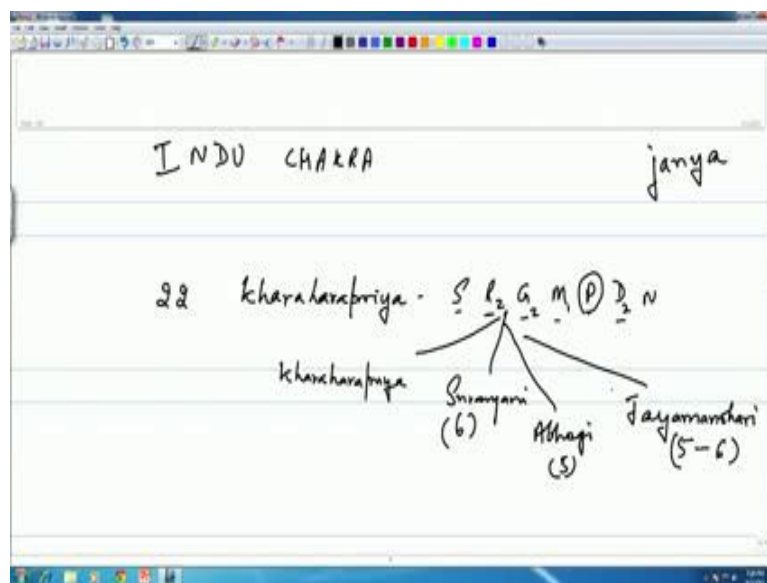 INDU CHAKRA janya
22 Kharaharapriya - S R2 G2 M1 P D2 N
Kharaharapriya
Sriranjani
(6)
Abhogi
(5)
Jayamanohari
(5-6)